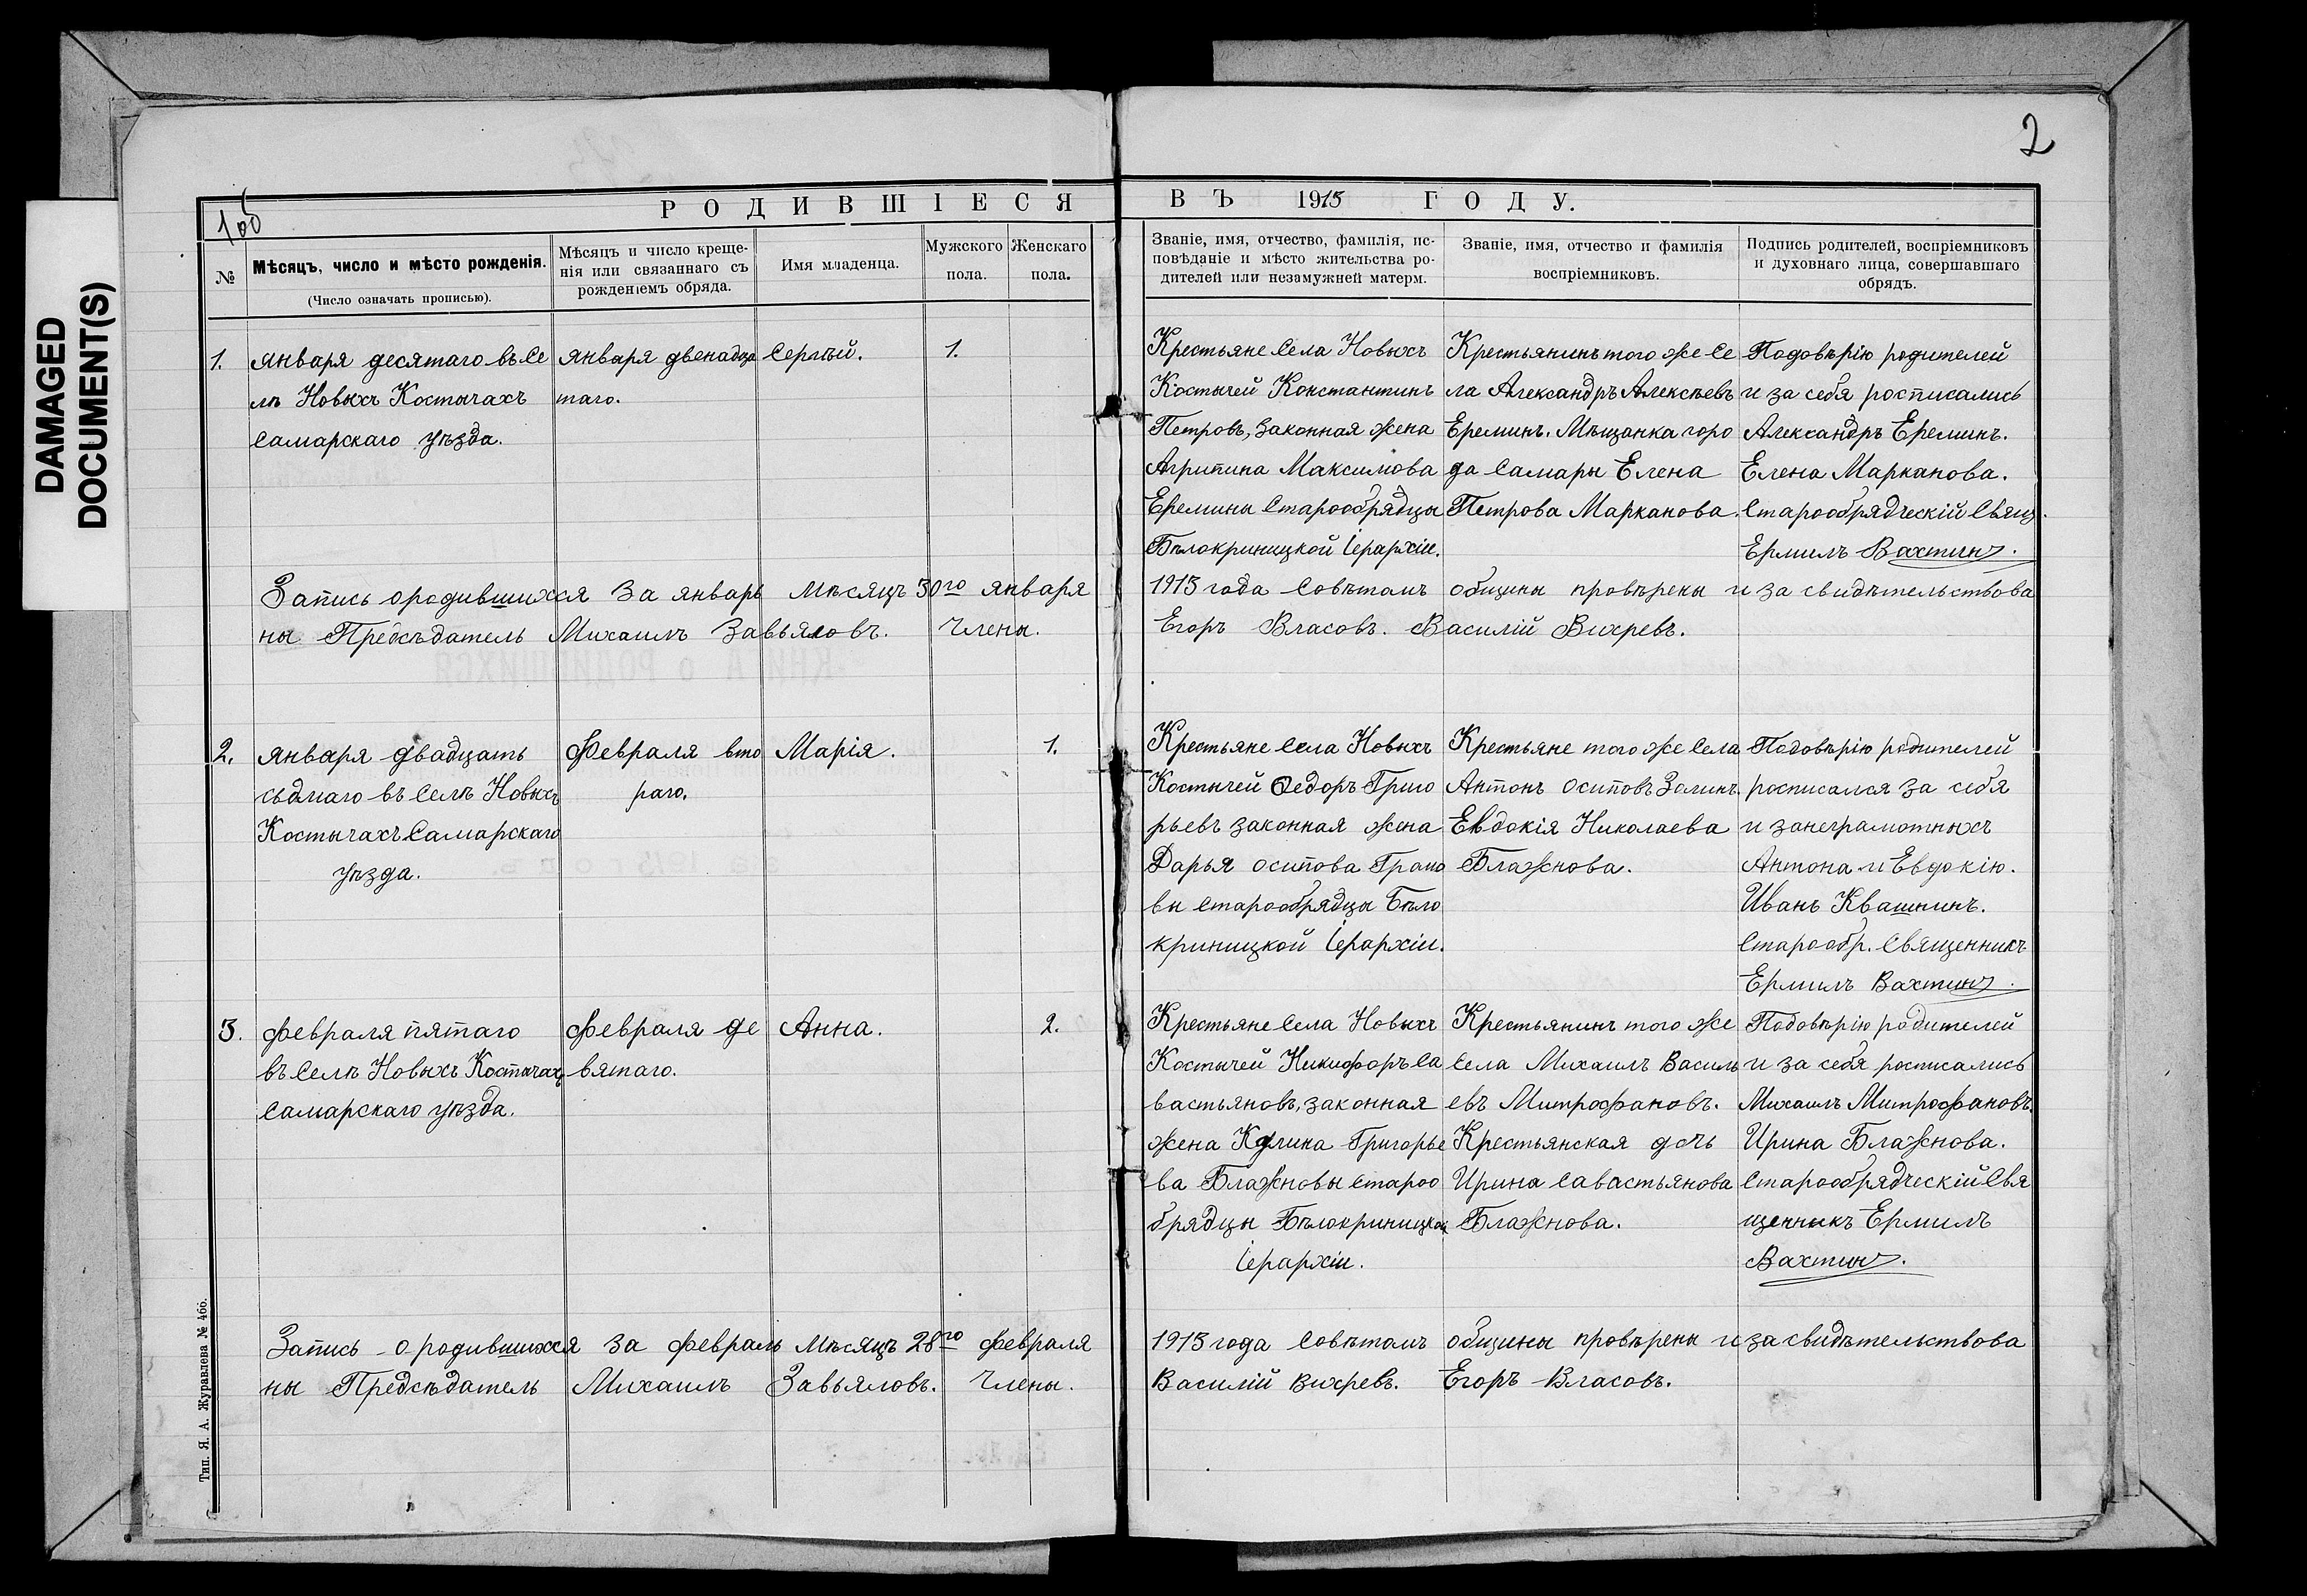 DAMAGED
DOCUMENT(S)
2
РОДИВШІЕСЯ ВЪ 1915 ГОДУ.
№
Мѣсяцъ, число и мѣсто рожденія.
(Число означать прописью).
Мѣсяцъ и число креще-
нія или связаннаго съ
рожденіемъ обряда.
Имя младенца.
Мужского
пола.
Женскаго
пола.
Званіе, имя, отчество, фамилія, ис-
повѣданіе и мѣсто жительства ро-
дителей или незамужней матерм.
Званіе, имя, отчество и фамилія
воспріемниковъ.
Подпись родителей, воспріемниковъ
и духовнаго лица, совершавшаго
обрядъ.
1.
января десятаго въ Се
лѣ Новыхъ Костычахъ
Самарскаго уѣзда.
января двенадца
таго.
Сергѣй.
1.
Крестьяне Села Новыхъ
Костычей Константинъ
Петровъ, законная жена
Агрипина Максимова
Еремины Старообрядцы
Бѣлокриницкой Іерархіи.
Крестьянинъ того же Се
ла Александръ Алексѣевъ
Ереминъ. Мѣщанка горо
да Самары Елена
Петрова Марканова.
Подовѣрію родителей
и за себя росписались
Александръ Ереминъ.
Елена Марканова.
Старообрядческій Свящ.
Ермилъ Вахтинъ.
Запись ородившихся за январь мѣсяцъ 30го января 1915 года Совѣтомъ общины провѣрены и за свидѣтельствова
ны Предсѣдатель Михаилъ Завьяловъ. Члены. Егоръ Власовъ. Василій Вихревъ.
2.
января двадцать
сьдмаго въ Селѣ Новыхъ
Костычахъ Самарскаго
уѣзда.
Февраля вто
раго.
Марія.
1.
Крестьяне Села Новыхъ
Костычей Ѳедоръ Григо
рьевъ законная жена
Дарья осипова Грамо
вы Старообрядцы Бѣло
криницкой Іерархіи.
Крестьяне того же Села
Антонъ осиповъ Золинъ.
Евдокія Николаева
Блажнова.
Подовѣрію родителей
росписался за себя
и занеграмотныхъ
Антона и Евдокію.
Иванъ Квашнинъ.
Старообр. Священникъ
Ермилъ Вахтинъ.
3.
февраля пятаго
въ Селѣ Новыхъ Костычахъ
Самарскаго уѣзда.
Февраля де
вятаго.
Анна.
2.
Крестьяне Села Новыхъ
Костычей Никифоръ Са
вастьяновъ, законная
жена Григорье
ва Блажновы Староо
брядцы Бѣлокриницкой
Іерархіи.
Крестьянинъ того же
Села Михаилъ Василь
евъ Митрофановъ.
Крестьянская дочь
Ирина Савастьянова
Блажнова.
Подовѣрію родителей
и за себя росписались
Михаилъ Митрофановъ.
Ирина Блажнова.
Старообрядческій Свя
щенникъ Ермилъ
Вахтинъ.
Запись о родившихся за февраль мѣсяцъ 28го февраля 1915 года Совѣтомъ общины провѣрены и за свидѣтельствова
ны Предсѣдатель Михаилъ Завьяловъ. Члены. Василій Вихревъ. Егоръ Власовъ.
Тип. Я. А. Журавлева № 466.